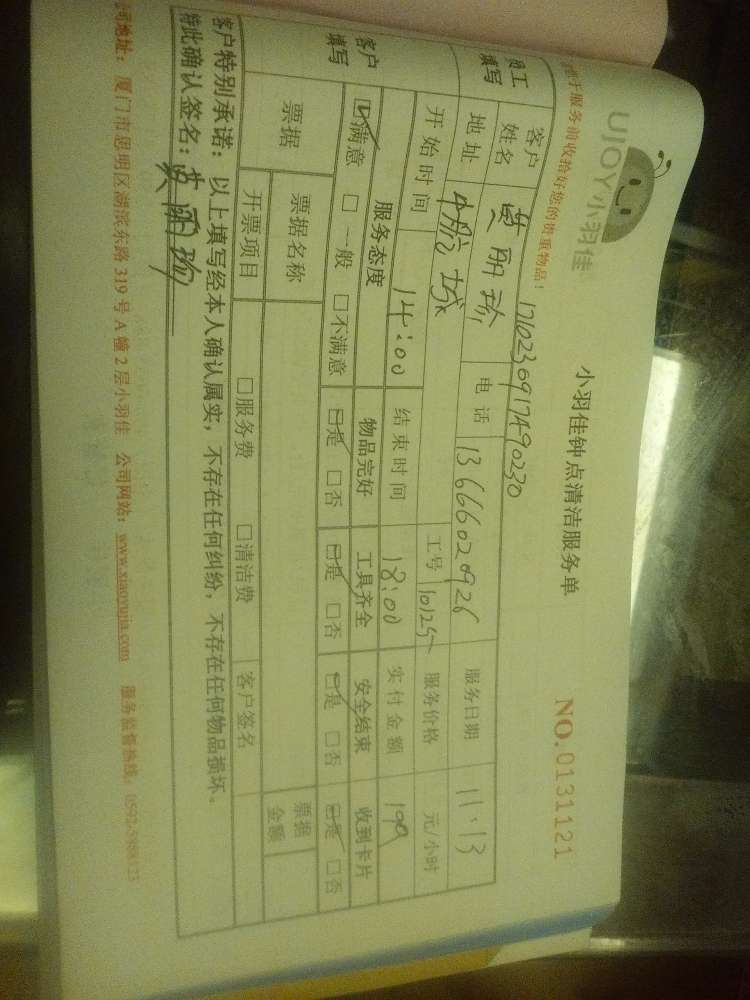 UJOY小羽佳
小羽佳钟点清洁服务单
NO.0131121
服务前收拾好您的贵重物品！
1710230917490230
员工填写
客户姓名 黄丽
电话 13666020926
服务日期 11.13
地址 中航城
工号 10125
服务价格 元/小时
开始时间 14:00
结束时间 18:00
实付金额 199
客户填写
服务态度 物品完好 工具齐全 安全结束 收到卡片
☑满意 □一般 □不满意 ☑是 □否 ☑是 □否 ☑是 □否 ☑是 □否
票据
票据名称
票据金额
开票项目 □服务费 □清洁费 客户签名
客户特别承诺：以上填写经本人确认属实，不存在任何纠纷，不存在任何物品损坏。
特此确认签名：黄丽
公司地址：厦门市思明区湖滨东路 319 号 A 幢 2 层小羽佳 公司网站：www.xiaoyujia.com 服务监督热线：